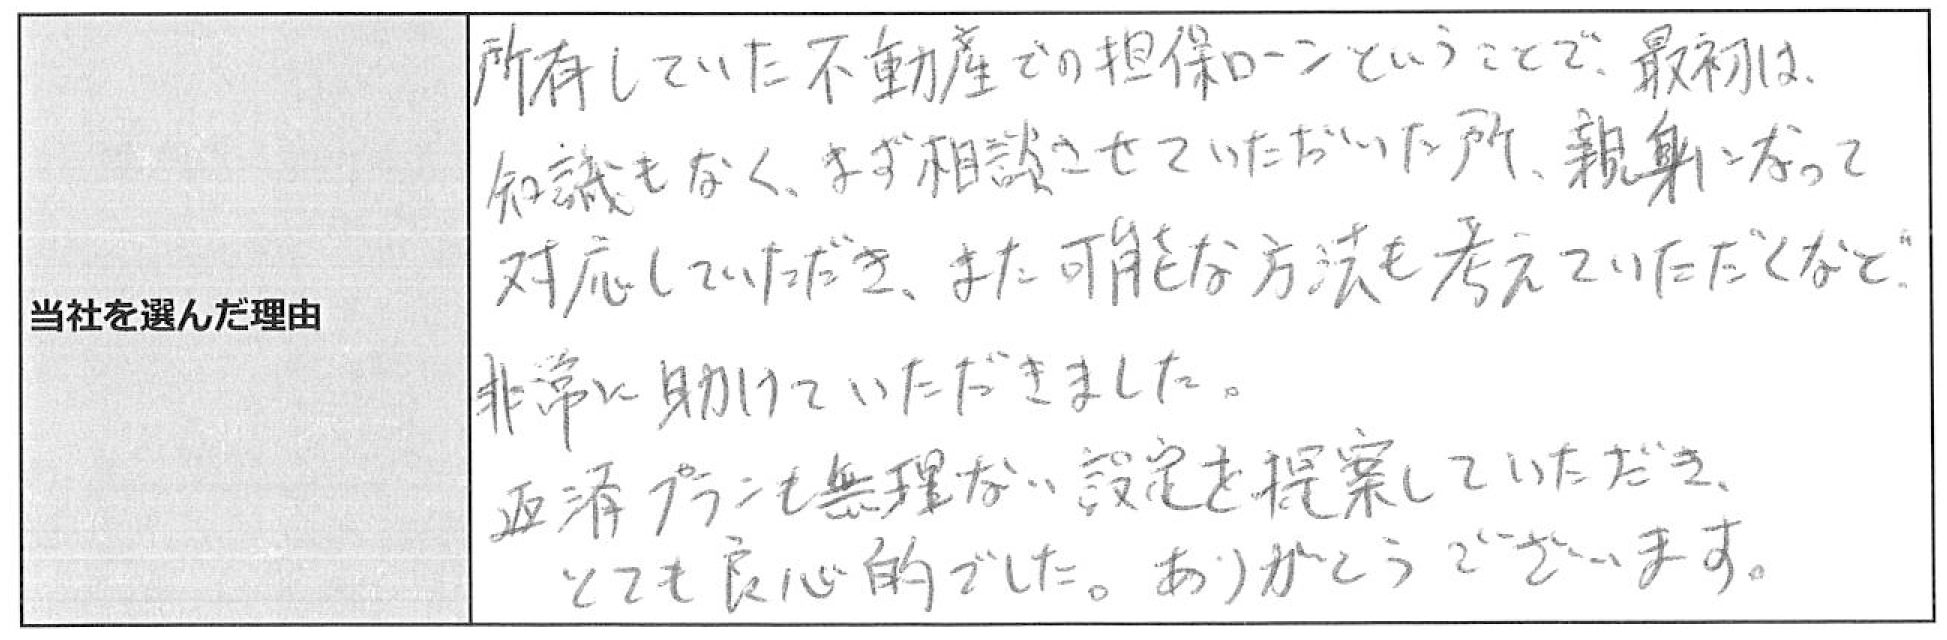 当社を選んだ理由
所有していた不動産での担保ローンということで、最初は、
知識もなく、まず相談させていただいた所、親身になって
対応していただき、また可能な方法も考えていただくなど、
非常に助けていただきました。
返済プランも無理ない設定を提案していただき、
とても良心的でした。ありがとうございます。